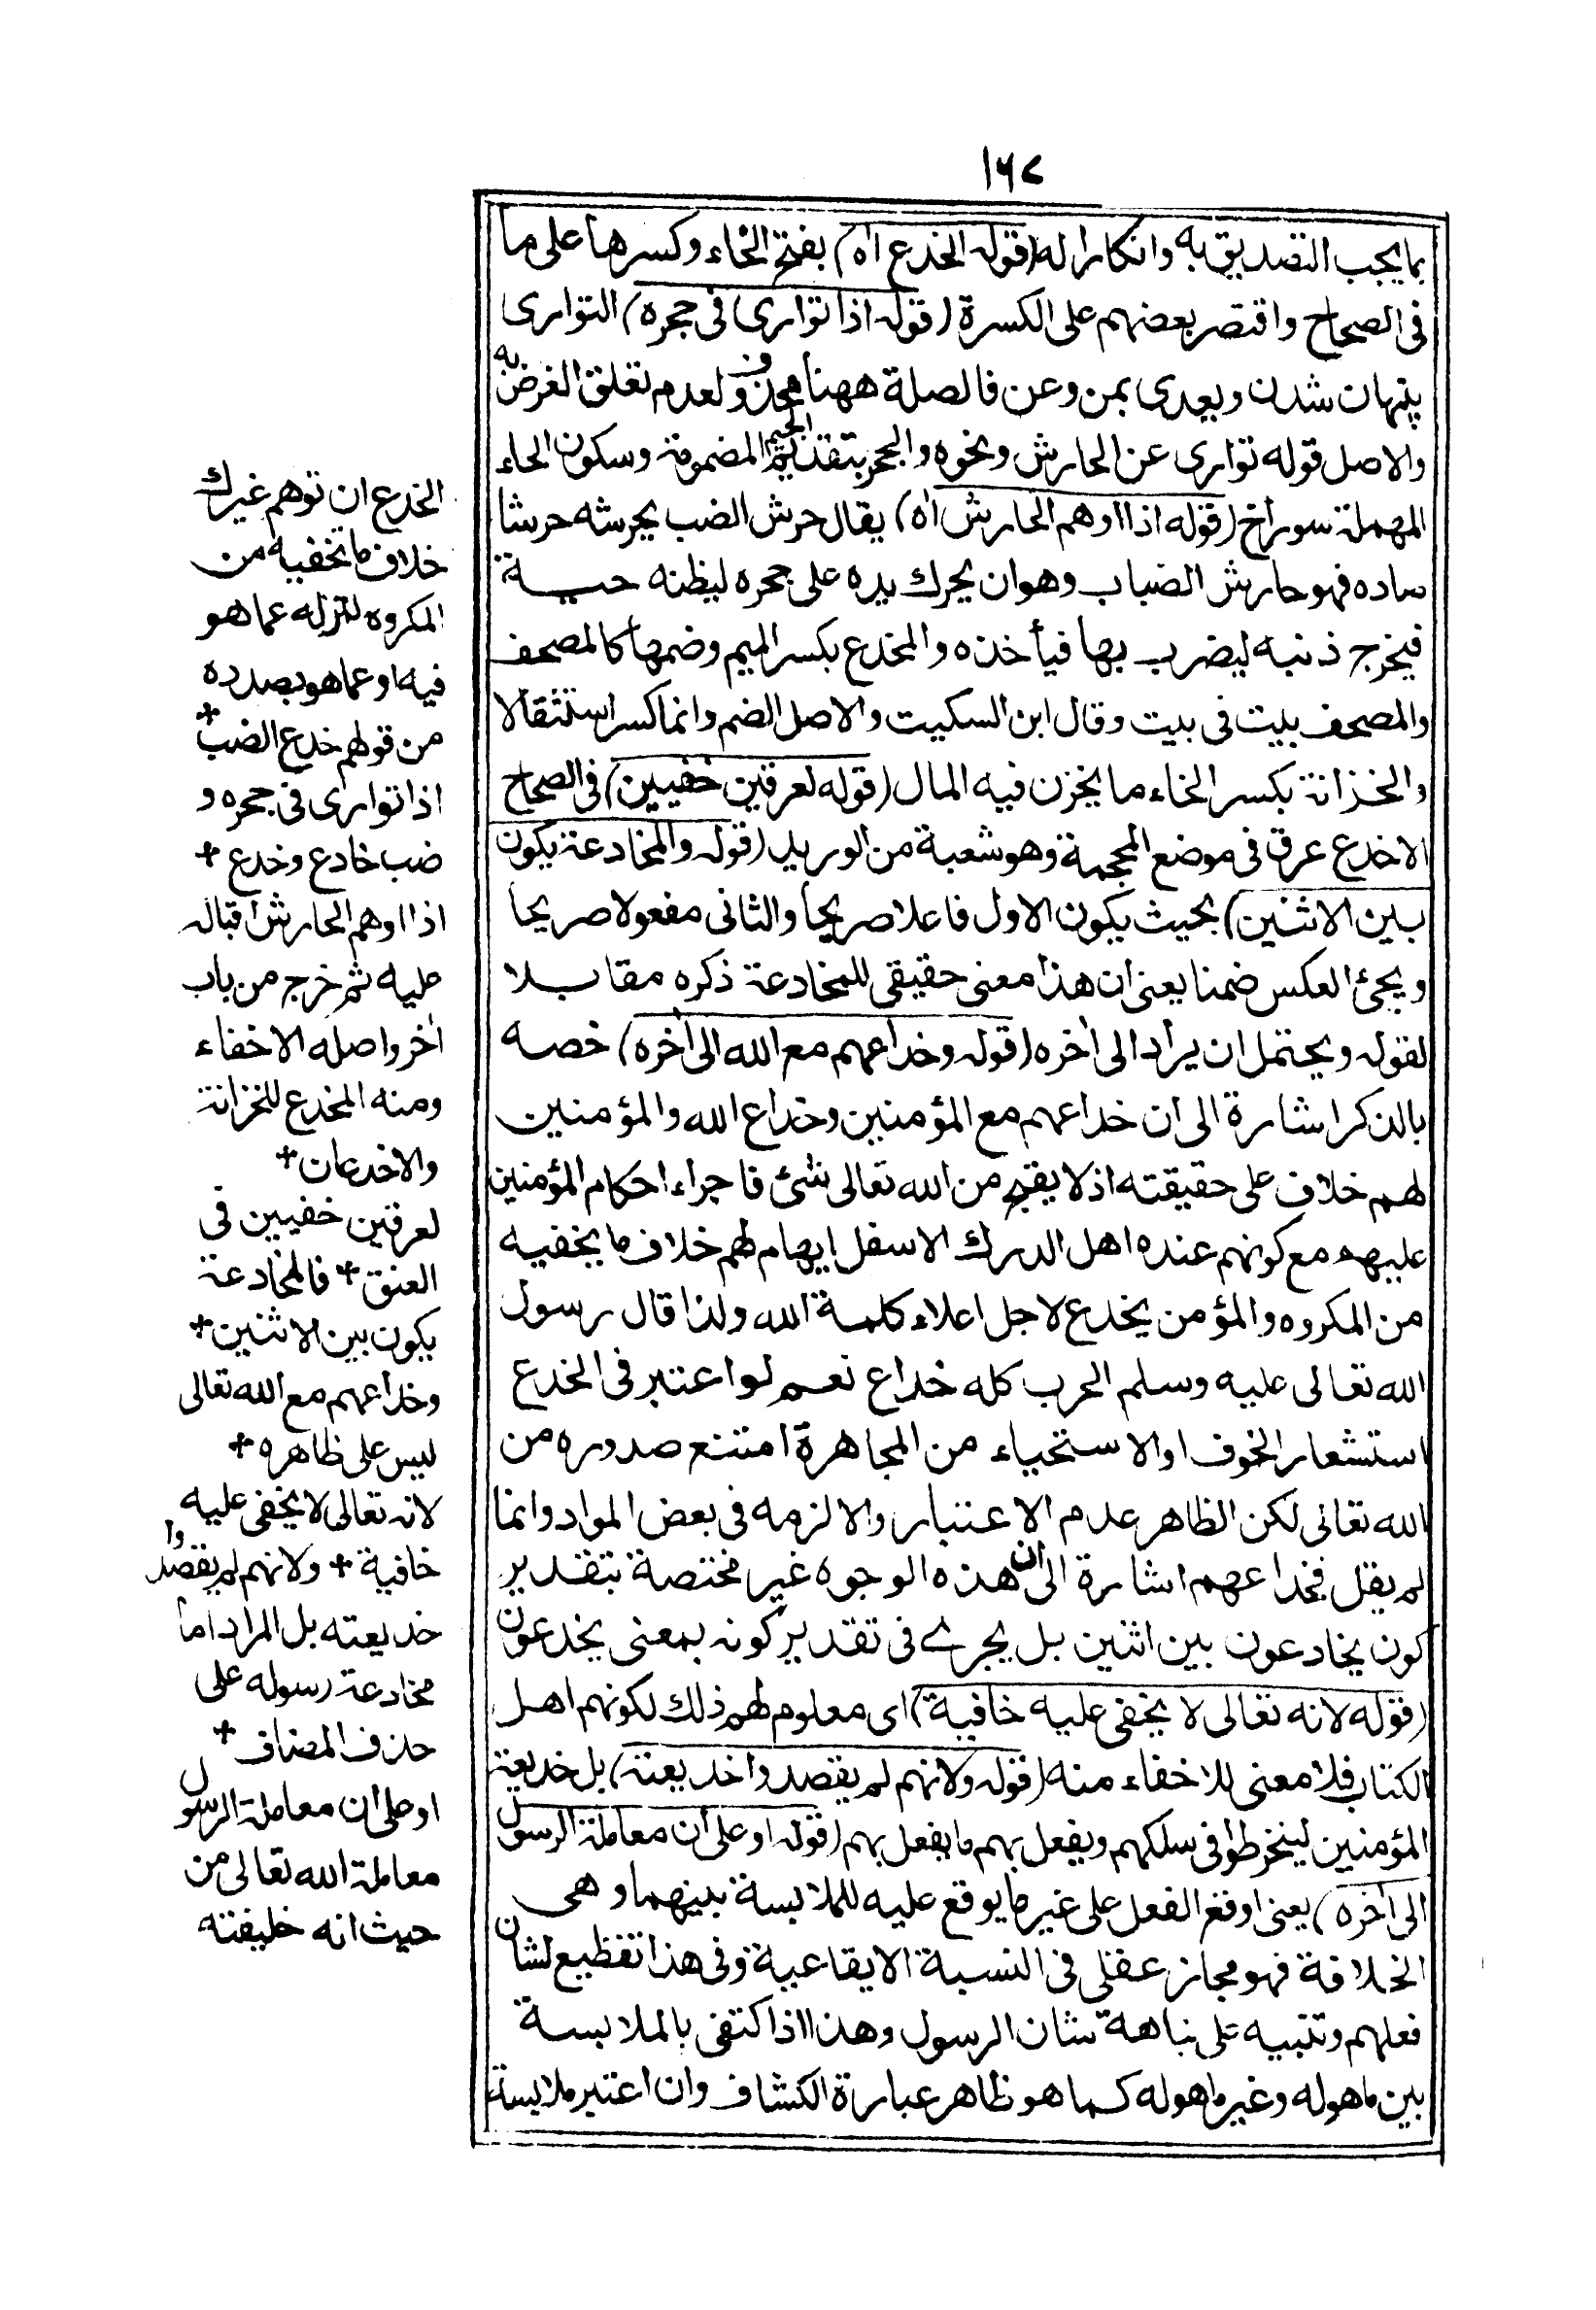 ١٦٧
بما يجب التصديق به وانكارا له (قوله الخدع اه) بفتح الخاء وكسرها على ما
فى الصحاح واقتصر بعضهم على الكسرة (قوله اذا توارى فى جحره) التوارى
پنهان شدن ويعدى بمن وعن فالصلة ههنا محذوف لعدم تعلق الغرض به
والاصل قوله توارى عن الحارش ونحوه والجحر بتقديم الجيم المضمومة وسكون الحاء
المهملة سوراخ (قوله اذا اوهم الحارش اه) يقال حرش الضب يحرشه حرشا
صاده فهو حارش الضباب وهو ان يحرك يده على جحره ليظنه حية
فيخرج ذنبه ليضرب بها فيأخذه والمخدع بكسر الميم وضمها كالمصحف
والمصحف بيت فى بيت وقال ابن السكيت والاصل الضم وانما كسر استثقالا
والخزانة بكسر الخاء ما يخزن فيه المال (قوله لعرقين خفيين) فى الصحاح
الاخدع عرق فى موضع المحجمة وهو شعبة من الوريد (قوله والمخادعة يكون
بين الاثنين) بحيث يكون الاول فاعلا صريحا والثانى مفعولا صريحا
ويجئ العكس ضمنا يعنى ان هذا معنى حقيقى للمخادعة ذكره مقابلا
لقوله ويحتمل ان يراد الى أخره (قوله وخداعهم مع الله الى أخره) خصه
بالذكر اشارة الى ان خداعهم مع المؤمنين وخداع الله والمؤمنين
لهم خلاف على حقيقته اذ لا يقبح من الله تعالى شئ فاجراء احكام المؤمنين
عليهم مع كونهم عنده اهل الدرك الاسفل ايهام لهم خلاف ما يخفيه
من المكروه والمؤمن يخدع لاجل اعلاء كلمة الله ولذا قال رسول
الله تعالى عليه وسلم الحرب كله خداع نعم لو اعتبر فى الخدع
استشعار الخوف او الاستحياء من المجاهرة امتنع صدوره من
الله تعالى لكن الظاهر عدم الاعتبار والا لزمه فى بعض المواد وانما
لم يقل فخداعهم اشارة الى ان هذه الوجوه غير مختصة بتقدير
كون يخادعون بين اثنين بل يجرے فى تقدير كونه بمعنى يخدعون
(قوله لانه تعالى لا يخفى عليه خافية) اى معلوم لهم ذلك لكونهم اهل
الكتاب فلا معنى للاخفاء منه (قوله ولانهم لم يقصدوا خديعته) بل خديعة
المؤمنين لينخرطوا فى سلكهم ويفعل بهم ما يفعل بهم (قوله او على أن معاملة الرسول
الى أخره) يعنى اوقع الفعل على غير ما يوقع عليه للملابسة بينهما وهى
الخلافة فهو مجاز عقلى فى النسبة الايقاعية وفى هذا تفظيع لشان
فعلهم وتنبيه على نباهة شان الرسول وهذا اذا اكتفى بالملابسة
بين ما هو له وغير ما هو له كما هو ظاهر عبارة الكشاف وان اعتبر ملابسة
الخدع ان توهم غيرك
خلاف ما تخفيه من
المكروه لتزله عما هو
فيه او عما هو بصدده
من قولهم خدع الضب +
اذا توارى فى جحره و
ضب خادع وخدع +
اذا اوهم الحارش اقباله
عليه ثم خرج من باب
أخر واصله الاخفاء
ومنه المخدع للخزانة
والاخدعان +
لعرقين خفيين فى
العنق + فالمخادعة
يكون بين الاثنين +
وخداعهم مع الله تعالى
ليس على ظاهره +
لانه تعالى لا يخفى عليه
خافية + ولانهم لم يقصدوا
خديعته بل المراد اما
مخادعة رسوله على
حذف المضاف +
او على ان معاملة الرسول
معاملة الله تعالى من
حيث انه خليفته